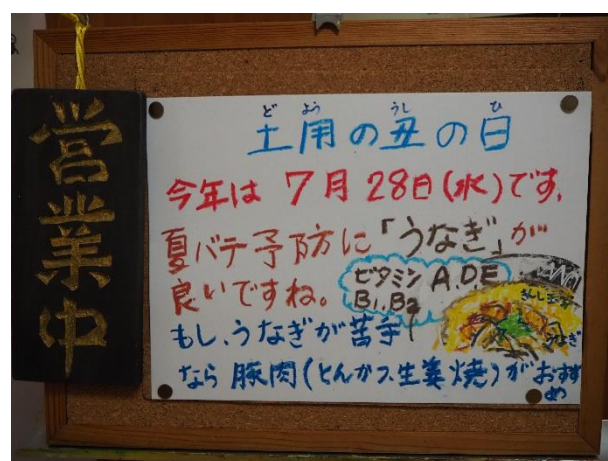 営業中
ど よう うし ひ
土用の丑の日
今年は 7月 28日(水)です。
夏バテ予防に「うなぎ」が
良いですね。
ビタミン A.D.E
B1.B2
もし、うなぎが苦手
なら 豚肉(とんカツ、生姜焼)がおすす
め